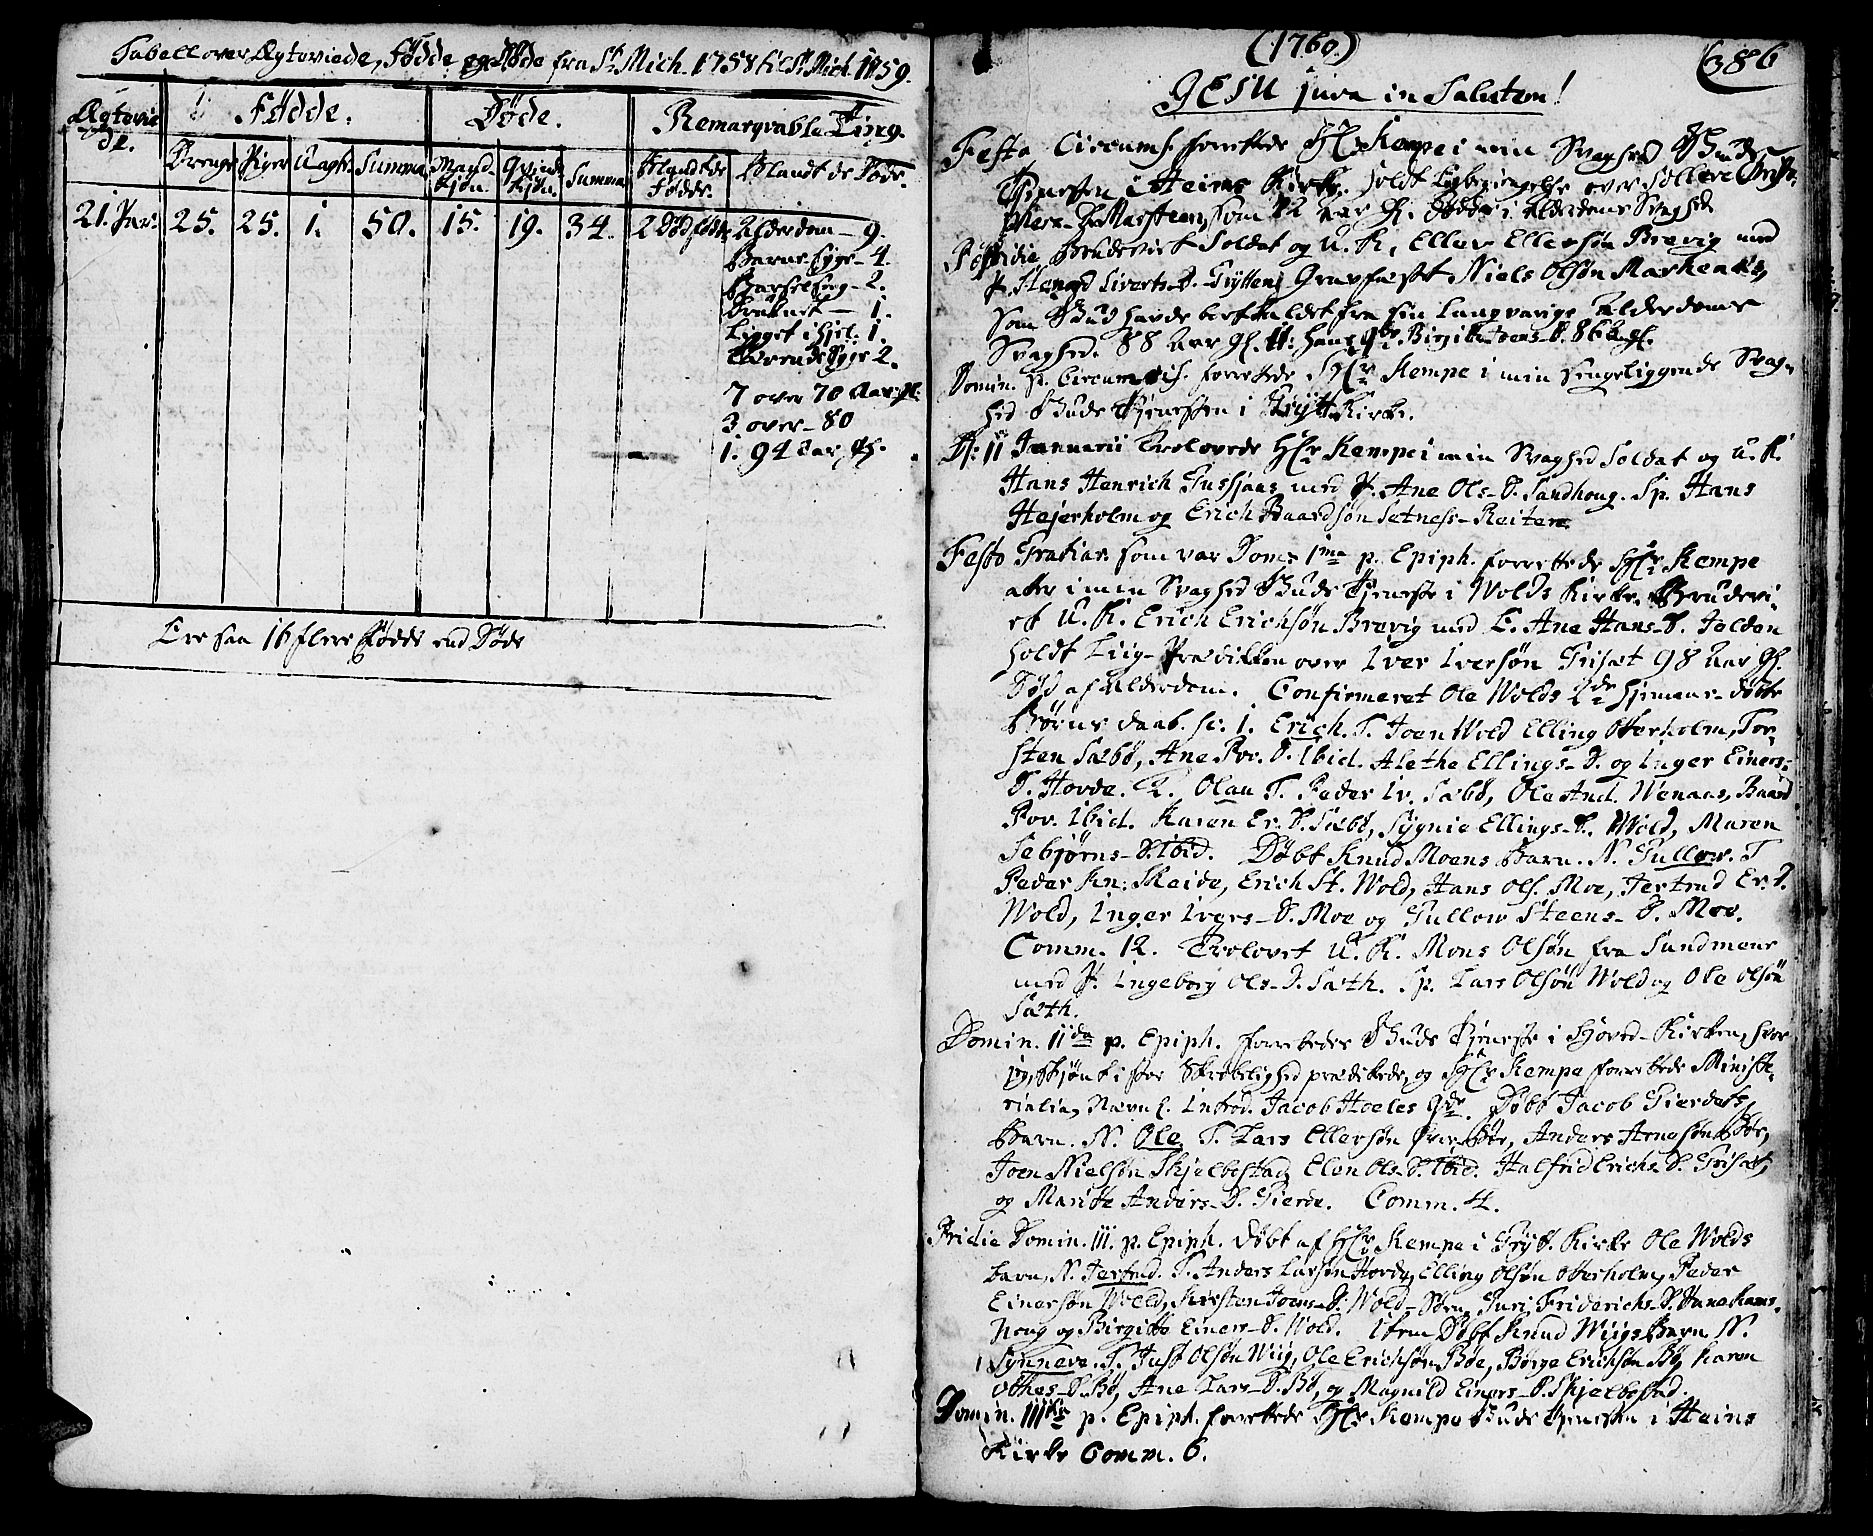 Tabell over Ægteviede, Fødde og Døde fra St Mich. 1758 til St Mich. 1759.
Ægtevie
de.
Fødde.
Døde.
Remarqvable Ting.
Drenge Piger Uægte Summa Mand Kjøn. Qvinde Kjøn. Summa Blandt de Fødde. Blandt de Døde.
21. Par. 25. 25. 1. 50. 15. 19. 34. 2 Dødfødde Alderdom – 9.
Barne Syge – 4
Barselseng – 2.
Druknet – 1.
Ligget ihjel. 1.
Tærende Syge 2.
7 over 70 Aar gl.
3 over – 80
1. 94 Aar gl.
Ere saa 16 flere Fødde end Døde
(1760.)
386
JESU juva in Salutem!
Festo Circumc. forrettede Hr. Kempe i min Svaghed Guds
Tjenesten i Heims Kirke. Holdt Ligbegjængelse over
som 82 Aar gl. døde i Alderdoms Svaghed
Brudeviet Soldat og U. K. Eller Ellersøn Brevig med
P. Siverts-D. Grytten. Gravfæstet Niels Olsøn Marhenes,
som Gud havde bortkaldet fra sin langvarige Alderdoms
Svaghed. 88 Aar gl. It: hans Qv. Birgitte Joens-D. 86 A. gl.
Domin. p. Circumcis. forrettede Hr. Kempe i min sengeliggende Svag-
hed Guds Tjenesten i Grytt. Kirke.
D: 11 Januarii Trolovede Hr. Kempe i min Svaghed Soldat og U. K.
Hans Henrich Fussjaas med P. Ane Ols-D. Sandhoug. Sp. Hans
Hejerholm og Erich Baardsøn Setness-Reiten
Festo Gratiar. som var Dom: 1ma p. Epiph. forrettede Hr. Kempe
atter i min Svaghed Guds Tjeneste i Wolds Kirke. Brudevi-
et U. K. Erich Erichsøn Brevig med E. Ane Hans-D.
holdt Liig-Prædiken over Iver Iversøn Griset 98 Aar gl.
Død af Alderdom. Confirmeret Ole Wolds 2de hjemme-døbte
Børns daab. sc. 1. Erich. T. Joen Wold Elling Otterholm, Tor-
sten Sæbø, Ane Pov. D. Ibid. Alethe Ellings-D. og Inger Einers-
D. Hovde. 2. Olau T. Peder Iv. Sæbø, Ole And. Wenaas, Baard
Pov. Ibid. Karen Er. D. Sæbø, Sygnie Ellings-D. Wold, Maren
Tebjørns-D. Ibid. Døbt Knud Moens Barn. N. Gullow. T
Peder Kn: Skeide, Erich St. Wold, Hans Ols. Moe, Jertrud Er. D.
Wold, Inger Ivers-D. Moe og Gullow Steens-D. Moe.
Comm. 12. Trolovet U. K. Mons Olsøn fra Sundmør
med P. Ingeborg Ols-D. Sæth. Sp. Lars Olsøn Wold og Ole Olsøn
Sæth.
Domin. IIda p. Epiph. forrettedes Guds Tjeneste i Hoved-Kirken, hvor
jeg, skjønt i stor Skrøbelighed prædikede, og Hr. Kempe forrettede Ministe-
rialia, Nævnl. Introd. Jacob Hoeles Qde. Døbt Jacob Gierdets
Barn. N. Ole. T. Lars Ellersøn Bøe, Anders Arnesøn Bøe,
Joen Nielsøn Skjelbostad Elen Ols-D. Ibid. Halfrid Erichs-D. Griset,
og Maritte Anders-D. Gierde. Comm. 4.
Pridie Domin. III. p. Epiph. Døbt af Hr. Kempe i Gryt. Kirke Ole Wolds
barn, N. Jertrud. T. Anders Larsøn Hovde, Elling Olsøn Otterholm, Peder
Einersøn Wold, Kirsten Joens-D. Wold-Søren, Guri Friderichs-D.
houg og Birgitte Einers-D. Wold. Item Døbt Knud Wiigs Barn N.
Synneve. T. Just Olsøn Wiig, Ole Erichsøn Bøe, Børge Erichsøn Bø, Karen
Othes-D. Bø, Ane Lars-D. Bø, og Magnild Einers-D. Skjelbostad.
Domin. IIItia p. Epiph. forrettede Hr. Kempe Guds Tjenesten i Heims
Kirke Comm. 6.